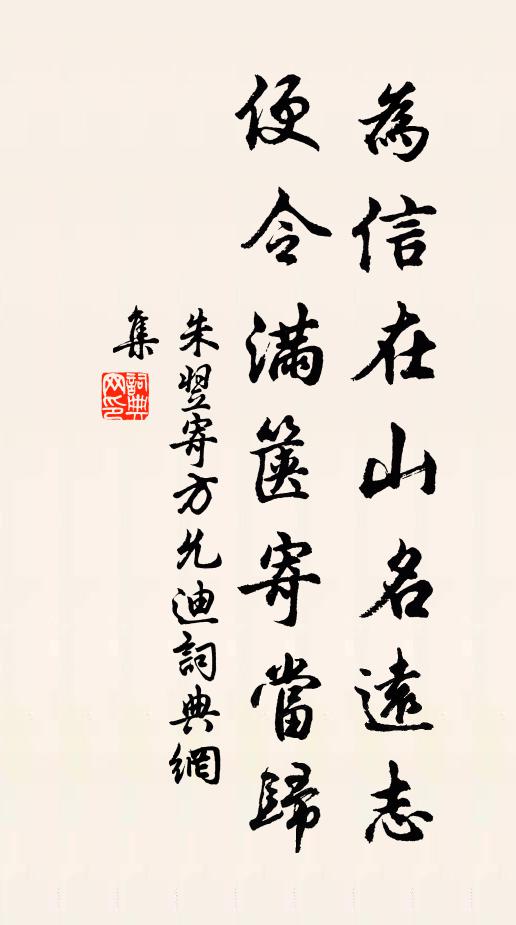 為信在山名遠志
便令滿篋寄當歸
朱翌寄方允迪詞典網
集
詞典网印